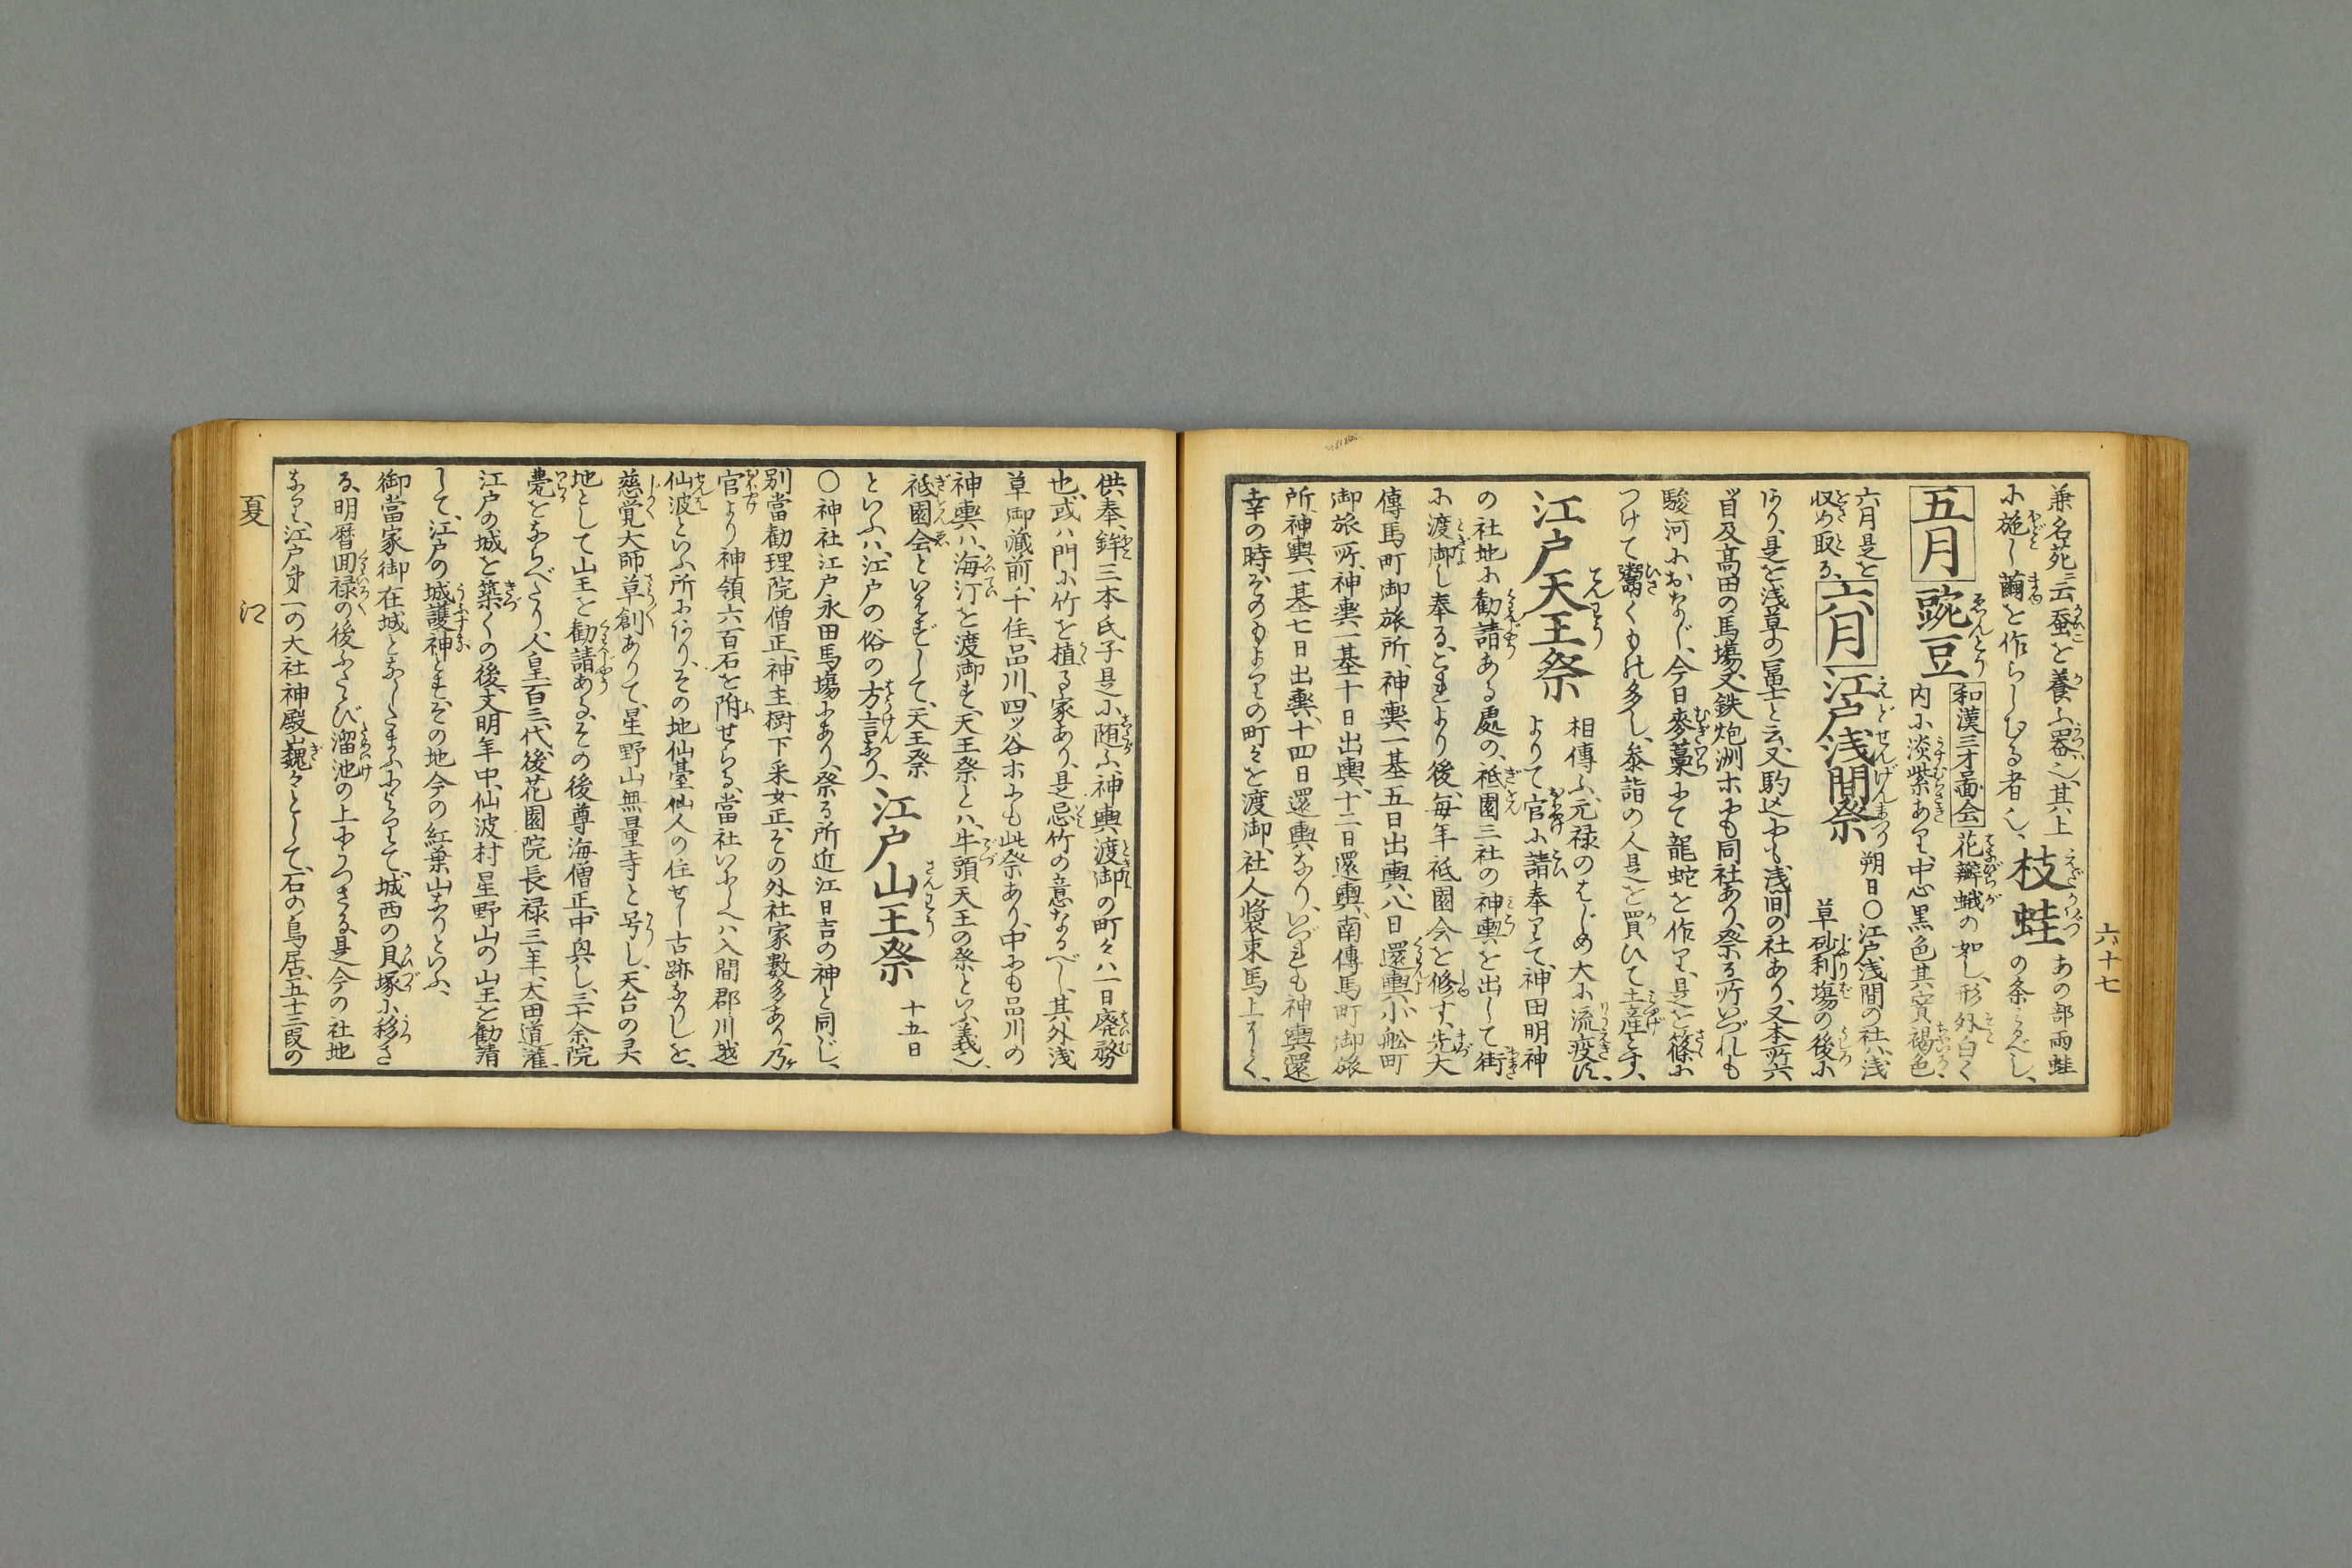 六十七
兼名苑云蚕を養ふ器也其上
に施し繭を作らしむる者也、枝蛙 あの部雨蛙の条みるべし、
五月 豌豆 和漢三才圖会 花辮蛾の如し、形外白く
内に淡紫あり、中心黒色其實褐色、
六月是を
収め取る、六月 江戸浅間祭 朔日〇江戸浅間の社ハ浅
草砂利塲の後に
あり、是を浅草の冨士と云又駒込にも浅间の社あり、又本所六
ツ目及高田の馬塲又鉄炮洲ホにも同社あり、祭る所いづれも
駿河におなじ、今日麥藁にて龍蛇を作り、是を篠に
つけて鬻くもの多し、参詣の人是を買ひて土産とす、
江戸天王祭 相傳ふ元禄のはじめ大に流疫す、
よりて官に請奉りて、神田明神
の社地に勧請ある處の、祇園三社の神輿を出して街
に渡御し奉る、これより後、毎年祇園会を修す、先大
傳馬町御旅所、神輿一基五日出輿、八日還輿、小舩町
御旅所、神輿一基十日出輿、十二日還輿、南傳馬町御旅
所、神輿一基七日出輿、十四日還輿なり、いづれも神輿還
幸の時そのもよりの町々を渡御、社人将装束馬上にく、
供奉、鉾三本氏子是に随ふ、神輿渡御の町々ハ一日廃務
也、或ハ門に竹を植る家あり、是忌竹の意なるべし、其外浅
草御藏前、千住、品川、四ッ谷ホにも此祭あり、中にも品川の
神輿ハ、海汀を渡御す、天王祭とハ、牛頭天王の祭といふ義也、
祗園会といはずして、天王祭
といふハ、江戸の俗の方言なり、江戸山王祭 十五日
〇神社江戸永田馬塲にあり、祭る所近江日吉の神と同じ、
别當勧理院僧正、神主樹下釆女正、その外社家數多あり、乃
官より神領六百石を附せらる、當社いにしへハ入間郡川越
仙波といふ所にあり、その地仙臺仙人の住せし古跡なりしを、
慈覚大師草創ありて、星野山無量寺と号し、天台の灵
地として山王を勧請ある、その後尊海僧正、中興し、三十余院
甍をならべたり、人皇百三代、後花園院長禄三年、太田道灌、
江戸の城を築くの後、文明年中、仙波村星野山の山王を勧請
して、江戸の城護神とす、その地今の紅葉山なりといふ、
御當家御在城となしたまふによりて、城西の貝塚に移さ
る、明暦回禄の後ふたゝび溜池の上にうつさる、是今の社地
なり、江戸才一の大社神殿巍々として、石の鳥居、五十三段の
夏 江